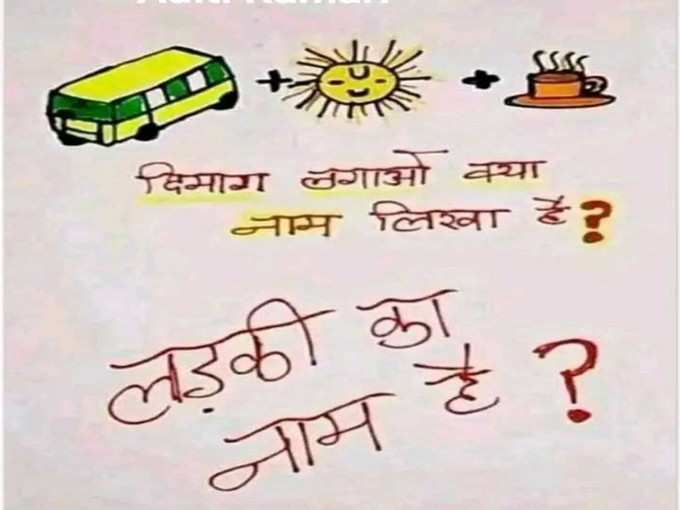 दिमाग लगाओ क्या
नाम लिखा है?
लड़की का
नाम है?